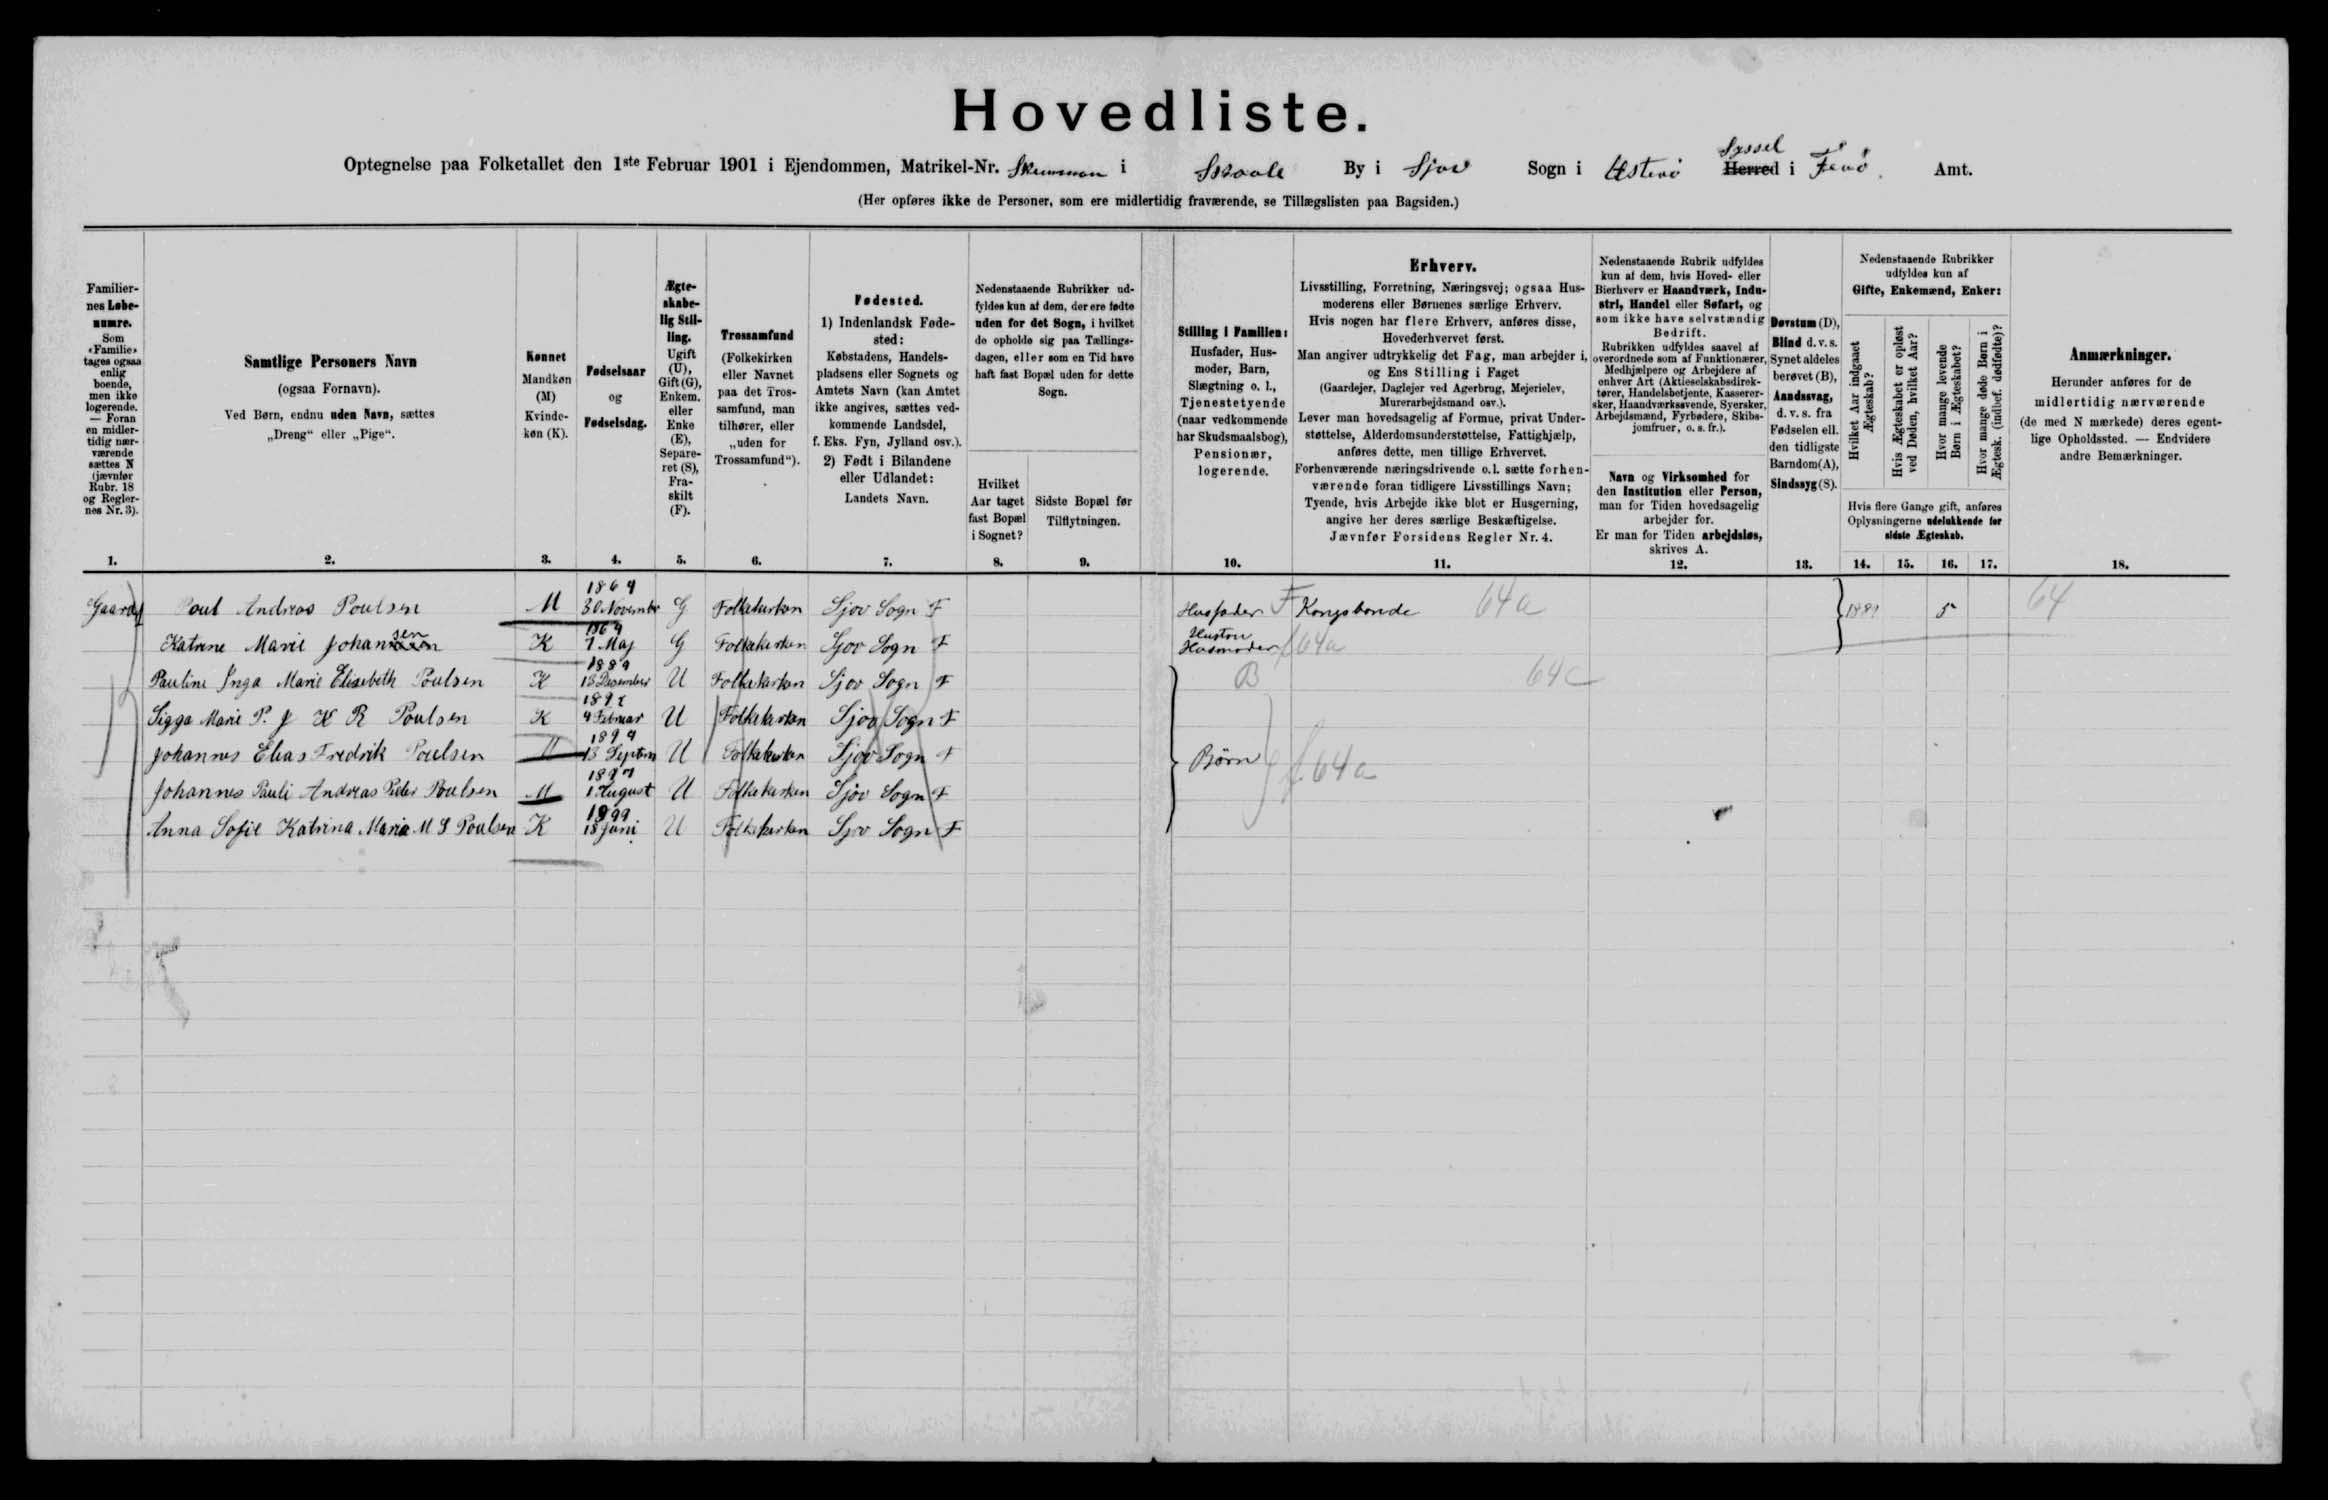 Hovedliste.
Optegnelse paa Folketallet den 1ste Februar 1901 i Ejendommen, Matrikel-Nr. i By i Sjov Sogn i Østerø Syssel Herred i Færø Amt.
(Her opføres ikke de Personer, som ere midlertidig fraværende, se Tillægslisten paa Bagsiden.)
Familiernes Løbenumre.
Som «Familie» tages ogsaa enlig boende, men ikke logerende. — Foran en midlertidig nærværende sættes N (jævnfør Rubr. 18 og Reglernes Nr. 3).
Samtlige Personers Navn
(ogsaa Fornavn).
Ved Børn, endnu uden Navn, sættes
„Dreng“ eller „Pige“.
Kønnet
Mandkøn
(M)
Kvinde-
køn (K).
Fødselsaar
og
Fødselsdag.
Ægte-
skabe-
lig Stil-
ling.
Ugift
(U),
Gift (G),
Enkem.
eller
Enke
(E),
Separe-
ret (S),
Fra-
skilt
(F).
Trossamfund
(Folkekirken
eller Navnet
paa det Tros-
samfund, man
tilhører, eller
„uden for
Trossamfund“).
Fødested.
1) IndenlandskFøde-
sted:
Købstadens, Handels-
pladsens eller Sognets og
Amtets Navn (kan Amtet
ikke angives, sættes ved-
kommende Landsdel,
f. Eks. Fyn, Jylland osv.).
2) Født i Bilandene
eller Udlandet:
Landets Navn.
Nedenstaaende Rubrikker ud-
fyldes kun af dem, der ere fødte
uden for det Sogn, i hvilket
de opholde sig paa Tællings-
dagen, eller som en Tid have
haft fast Bopæl uden for dette
Sogn.
Hvilket
Aar taget
fast Bopæl
i Sognet?
Sidste Bopæl før
Tilflytningen.
Stilling i Familien:
Husfader, Hus-
moder, Barn,
Slægtning o. l.,
Tjenestetyende
(naar vedkommende
har Skudsmaalsbog),
Pensionær,
logerende.
Erhverv.
Livsstilling, Forretning, Næringsvej; ogsaa Hus-
moderens eller Børnenes særlige Erhverv.
Hvis nogen har flere Erhverv, anføres disse,
Hovederhvervet først.
Man angiver udtrykkelig det Fag, man arbejder i,
og Ens Stilling i Faget
(Gaardejer, Daglejer ved Agerbrug, Mejerielev,
Murerarbejdsmand osv.).
Lever man hovedsagelig af Formue, privat Under-
støttelse, Alderdomsunderstøttelse, Fattighjælp,
anføres dette, men tillige Erhvervet.
Forhenværende næringsdrivende o.l. sætte forhen-
værende foran tidligere Livsstillings Navn;
Tyende, hvis Arbejde ikke blot er Husgerning,
angive her deres særlige Beskæftigelse.
Jævnfør Forsidens Regler Nr. 4.
Nedenstaaende Rubrik udfyldes
kun af dem, hvis Hoved- eller
Bierhverv er Haandværk, Indu-
stri, Handel eller Søfart, og
som ikke have selvstændig
Bedrift.
Rubrikken udfyldes saavel af
overordnede som af Funktionærer,
Medhjælpere og Arbejdere af
enhver Art (Aktieselskabsdirek-
tører, Handelsbetjente, Kasserer-
sker, Haandværkssvende, Syersker,
Arbejdsmænd, Fyrbødere, Skibs-
jomfruer, o. s. fr.).
Navn og Virksomhed for
den Institution eller Person,
man for Tiden hovedsagelig
arbejder for.
Er man for Tiden arbejdsløs,
skrives A.
Døvstum (D),
Blind d. v. s.
Synet aldeles
berøvet (B),
Aandssvag,
d. v. s. fra
Fødselen ell.
den tidligste
Barndom (A),
Sindssyg (S).
Nedenstaaende Rubrikker
udfyldes kun af
Gifte, Enkemænd, Enker:
Hvilket Aar indgaaet Ægteskab?
Hvis Ægteskabet er opløst ved Døden, hvilket Aar?
Hvor mange levende Børn i Ægteskabet?
Hvor mange døde Børn i Ægtesk. (indbef. dødfødte)?
Hvis flere Gange gift, anføres
Oplysningerne udelukkende for
sidste Ægteskab.
Anmærkninger.
Herunder anføres for de
midlertidig nærværende
(de med N mærkede) deres egent-
lige Opholdssted. — Endvidere
andre Bemærkninger.
1. 2. 3. 4. 5. 6. 7. 8. 9. 10. 11. 12. 13. 14. 15. 16. 17. 18.
Gaard Poul Andreas Poulsen M 1864 30 November G Folkekirken Sjov Sogn F Husfader F Kongsbonde 64a 5 64
Katrine Marie Johansen K 1864 7 Maj G Folkekirken Sjov Sogn F Hustru Husmoder f 64a
Pauline Inga Marie Elisebeth Poulsen K 1889 18 Desember U Folkekirken Sjov Sogn F B 64c
Sigga Marie P. J K R Poulsen K 4 Februar U Folkekirken Sjov Sogn F
Johannes Elias Fredrik Poulsen M 1894 13 Septem U Folkekirken Sjov Sogn F Børn f. 64a
Johannes Pauli Andreas Peder Poulsen M 1897 1 August U Folkekirken Sjov Sogn F
Anna Sofie Katrina Maria M S Poulsen K 1899 18 Juni U Folkekirken Sjov Sogn F